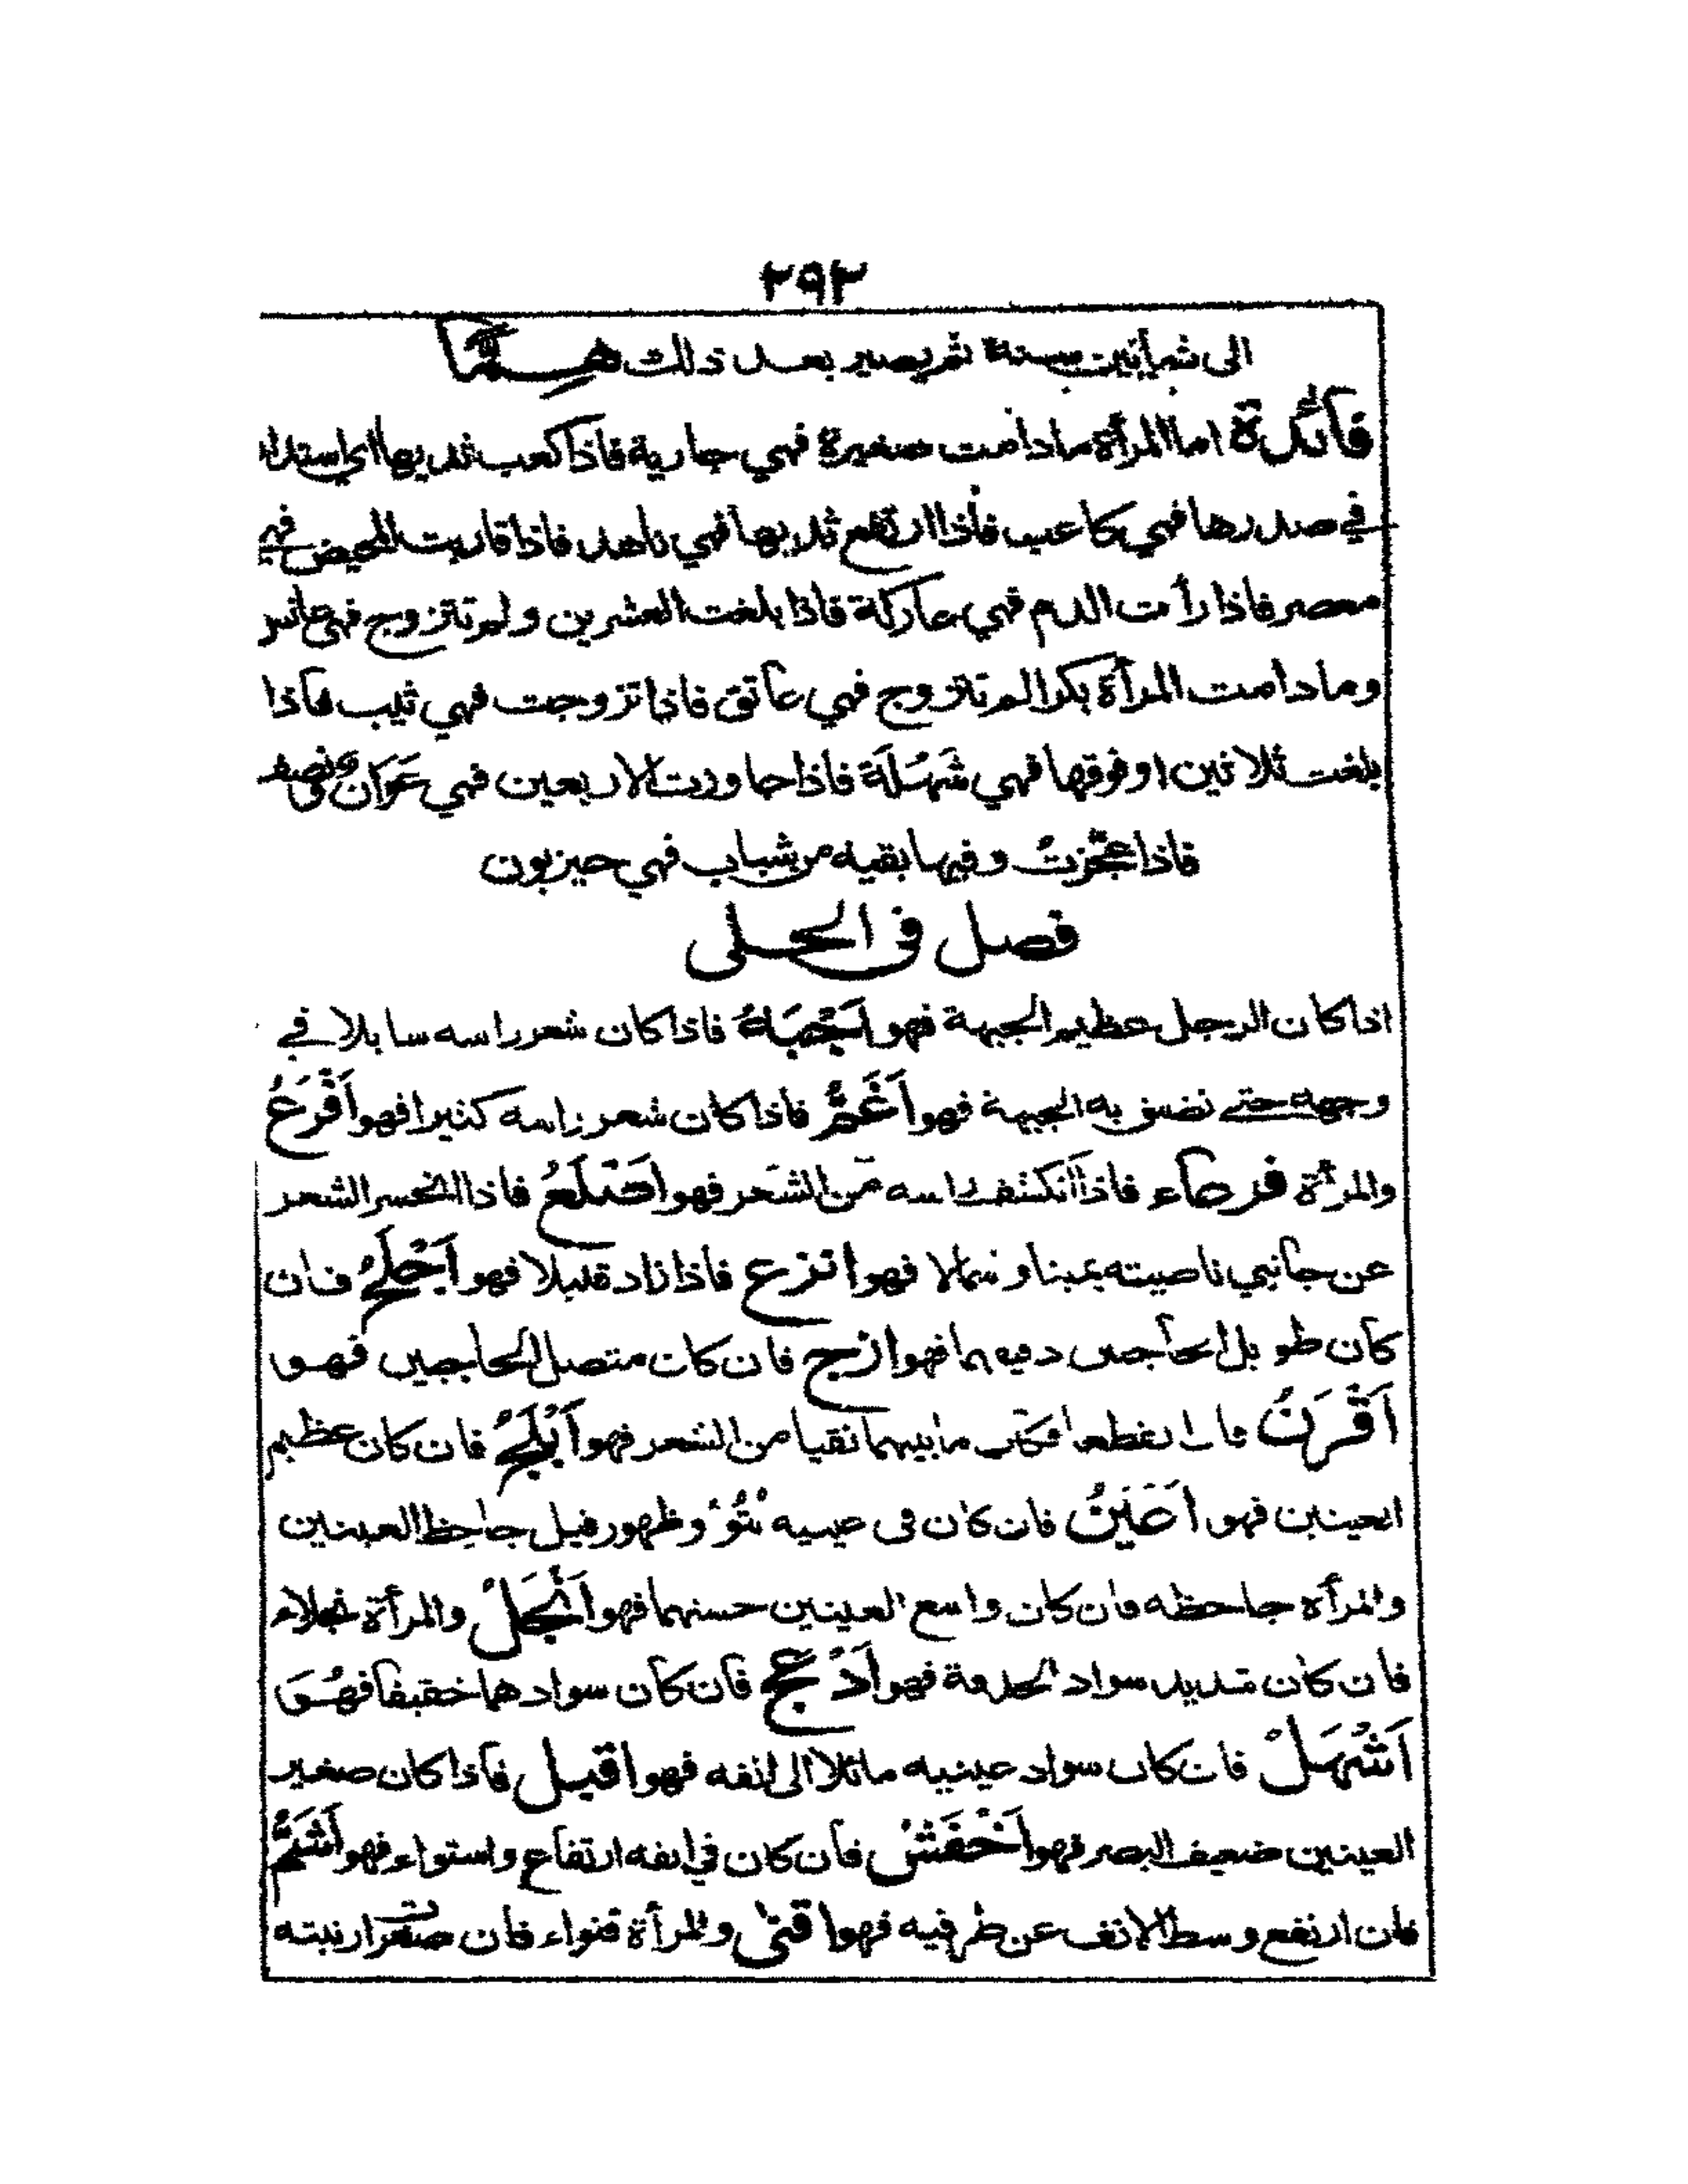 ٢٩٢
الى ثمانين سنة ثم يصير بعد ذلك هِــمًّا
فائدة اما المرأة مادامت صغيرة فهي جارية فاذا كعب ثديها اي استدار
في صدرها فهي كاعب فاذا ارتفع ثديها فهي ناهد فاذا قاربت المحيض فهي
معصر فاذا رأت الدم فهي عاركة فاذا بلغت العشرين ولم تتزوج فهي عانس
ومادامت المرأة بكرا لم تتزوج فهي عاتق فاذا تزوجت فهي ثيب فاذا
بلغت ثلاثين اوفوقها فهي شَهْلَة فاذا جاوزت الاربعين فهي عَوَانٌ ونصف
فاذا عجّزتْ وفيها بقيه من شباب فهي حيزبون
فصل فى الحلى
اذا كان الرجل عظيم الجبهة فهو اَجْبَهُ فاذا كان شعر راسه سابلا في
وجهه حتى تضيق به الجبهة فهو اَغَمُّ فاذا كان شعر راسه كثيرا فهو اَفْرَعُ
والمرأة فرعاء فاذا انكشف راسه من الشعر فهو اَصْلَعُ فاذا انحسر الشعر
عن جانبي ناصيته يمينا وشمالا فهو انزع فاذا زاد قليلا فهو اَجْلَحُ فان
كان طويل الحاجبين دقيقهما فهو ازج فان كان متصل الحاجبين فهو
اَقْرَنُ فان انقطعا فكان مابينهما نقيا من الشعر فهو اَبْلَجُ فان كان عظيم
العينين فهو اَعْيَنُ فان كان فى عينيه نُتُوْءٌ وظهور قيل جاحظ العينين
والمرأة جاحظه فان كان واسع العينين حسنهما فهو اَنْجَلْ والمرأة نجلاء
فان كان شديد سواد الحدقة فهو اَدْعج فان كان سوادهما خفيفا فهُوَ
اَشْهَلْ فان كان سواد عينيه مائلا الى انفه فهو اقبل فاذا كان صغير
العينين ضعيف البصر فهو اَخْفَشُ فان كان في انفه ارتفاع واستواء فهو اَشَمُّ
فان ارتفع وسط الانف عن طرفيه فهو اقنى والمرأة قنواء فان صغرت ارنبته